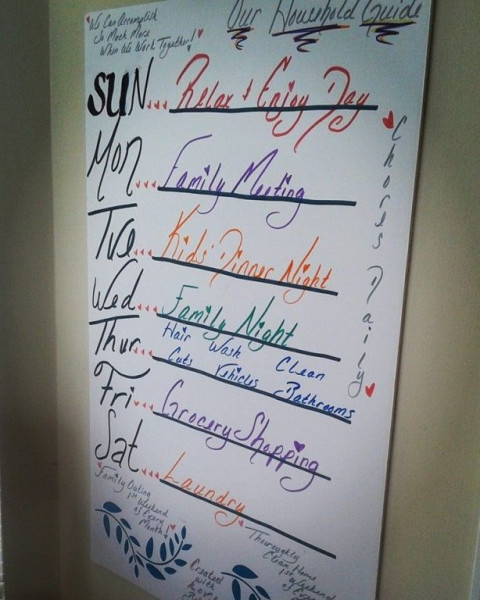 We Can Accomplish
So Much More
When We Work Together!
Our Household Guide
SUN... Relax & Enjoy Day
Mon... Family Meeting
Tue... Kids' Dinner Night
Wed... Family Night
Thur... Hair Wash Clean
Cuts Vehicles Bathrooms
Fri... Grocery Shopping
Sat... Laundry
Chores Daily
Family Outing
1st Weekend
of Every
Month!
Thoroughly
Clean Home
1st Weekend
of Every
Created
with